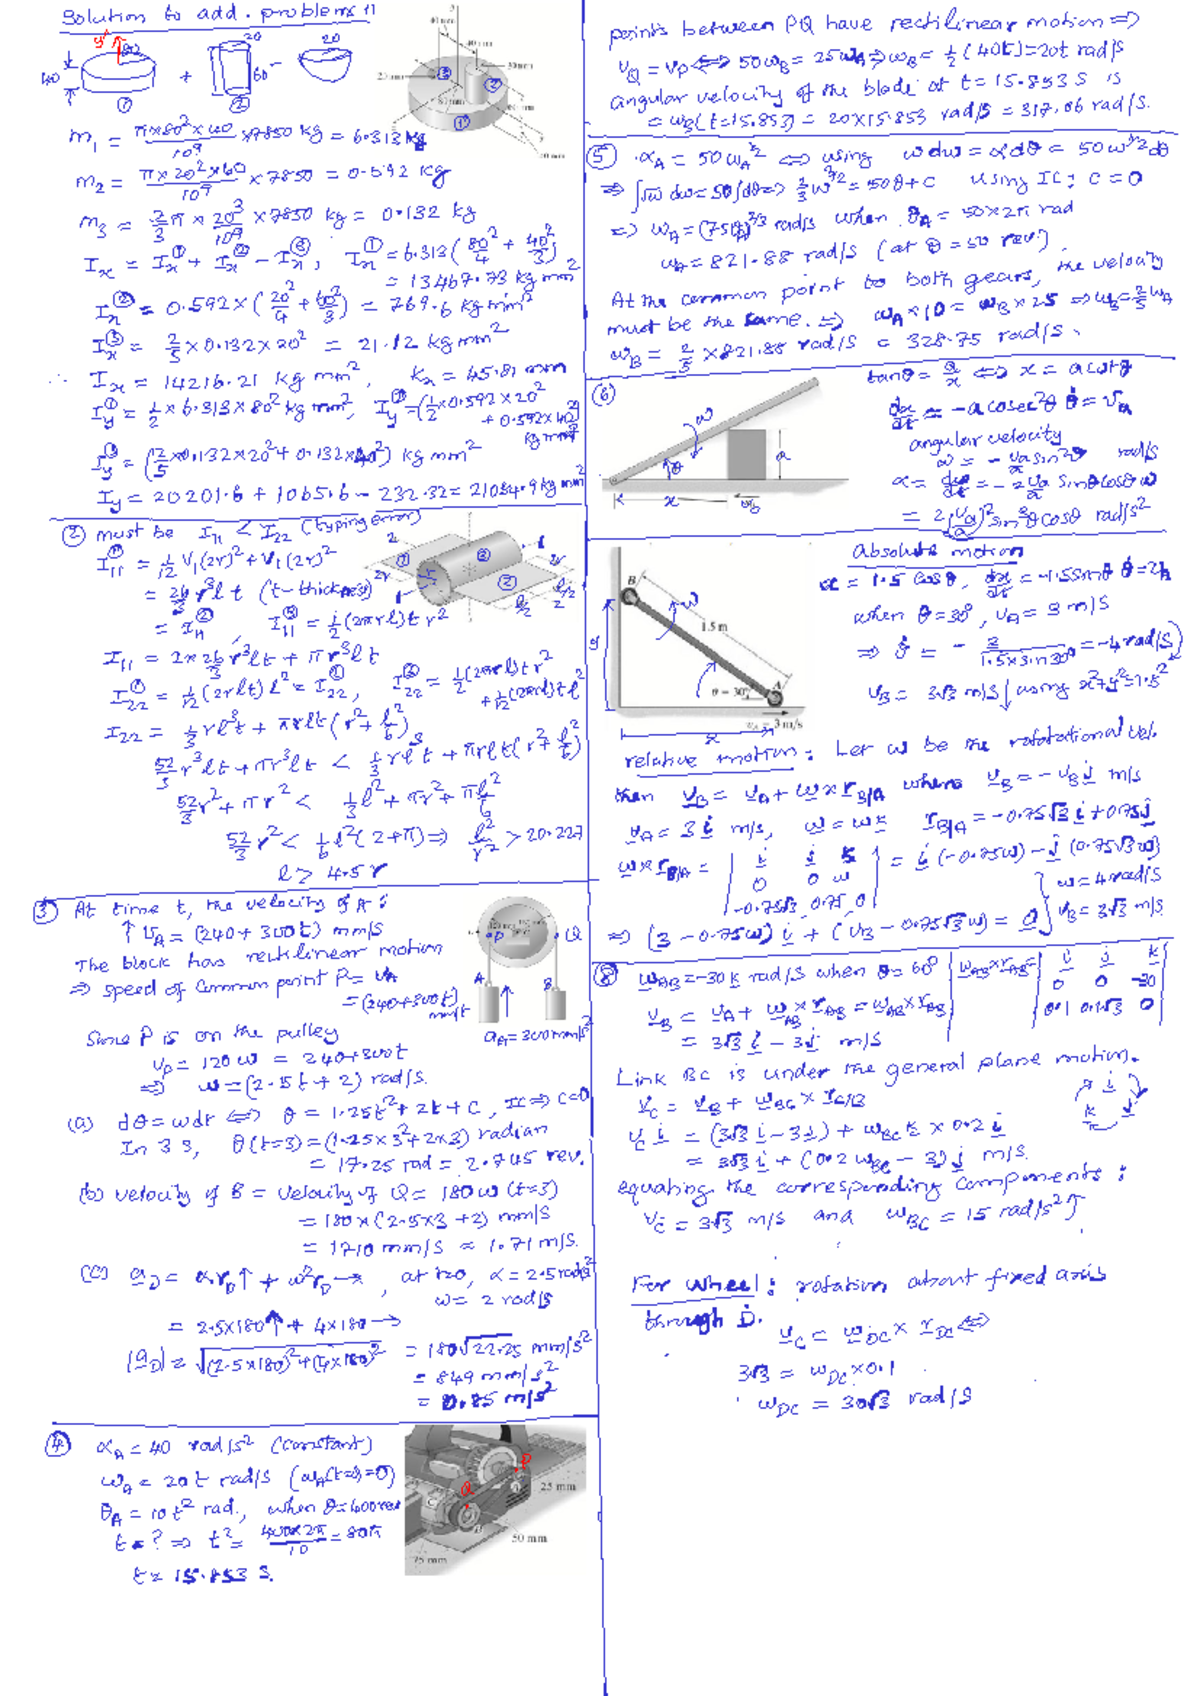 Solution to add. problems 11
y
80
20
20
40
60
+
-
① ②
40 mm
40 mm
20 mm
80 mm
m₁ = π×80²×40/10⁹ ×7850 kg = 6.313 kg
m₂ = π×20²×60/10⁹ ×7850 = 0.592 kg
m₃ = 2/3 π × 20³/10⁹ ×7850 kg = 0.132 kg
Iₓ = Iₓ① + Iₓ② - Iₓ③ ; Iₓ① = 6.313(80²/4 + 40²/3)
= 13467.73 kg mm²
Iₓ② = 0.592×(20²/4 + 60²/3) = 769.6 kg mm²
Iₓ③ = 2/5 × 0.132×20² = 21.12 kg mm²
∴ Iₓ = 14216.21 kg mm², kₓ = 45.81 mm
I_y① = 1/2 × 6.313×80² kg mm², I_y② = (1/2 × 0.592×20² + 0.592×40²) kg mm²
I_y③ = (2/5 ×0.132×20² + 0.132×40²) kg mm²
I_y = 20201.6 + 1065.6 - 232.32 = 21034.9 kg mm²
② must be I₁₁ < I₂₂ (typing error)
I₁₁① = 1/12 V₁(2r)² + V₁(2r)²
= 26/3 r³lt (t - thickness)
= I₁₁②, I₁₁③ = 1/2 (2πrl)t r²
I₁₁ = 2×26/3 r³lt + πr³lt
I₂₂① = 1/12 (2rlt) l² = I₂₂②, I₂₂③ = 1/2 (2πrl)t r² + 1/12 (2πrl)t l²
I₂₂ = 1/3 rl³t + πrlt(r² + l²/6)
52/3 r³lt + πr³lt < 1/3 rl³t + πrlt(r² + l²/6)
52/3 r² + πr² < 1/3 l² + πr² + π l²/6
52/3 r² < 1/6 l²(2+π) ⇒ l²/r² > 20.227
l > 4.5 r
③ At time t, the velocity of A :
↑ v_A = (240 + 300t) mm/s
The block has rectilinear motion
⇒ speed of common point P = v_A
= (240+300t) mm/s
P Q
A B
a_A = 300 mm/s²
Since P is on the pulley
v_P = 120 ω = 240+300t
⇒ ω = (2.5t + 2) rad/s.
(a) dθ = ωdt ⇔ θ = 1.25t² + 2t + C, IC ⇒ C=0
In 3 s, θ(t=3) = (1.25×3² + 2×3) radian
= 17.25 rad = 2.745 rev.
(b) velocity of B = velocity of Q = 180 ω (t=3)
= 180 × (2.5×3 + 2) mm/s
= 1710 mm/s ≈ 1.71 m/s.
(c) a_D = α r_D ↑ + ω² r_D →, at t=0, α = 2.5 rad/s²
ω = 2 rad/s
= 2.5×180 ↑ + 4×180 →
|a_D| = √((2.5×180)² + (4×180)²) = 180√22.25 mm/s²
= 849 mm/s²
= 0.85 m/s²
④ α_A = 40 rad/s² (constant)
ω_A = 20t rad/s (ω_A(t=0)=0)
θ_A = 10t² rad., when θ=400 rev
t = ? ⇒ t² = 400×2π/10 = 80π
t = 15.853 s.
P
Q
25 mm
50 mm
75 mm
points between PQ have rectilinear motion ⇒
v_Q = v_P ⇔ 50ω_B = 25ω_A ⇒ ω_B = 1/2(40t) = 20t rad/s
angular velocity of the blade at t = 15.853 s is
= ω_B(t=15.853) = 20×15.853 rad/s = 317.06 rad/s.
⑤ α_A = 50 ω_A^1/2 ⇔ using ωdω = αdθ = 50 ω^1/2 dθ
⇒ ∫√ω dω = 50∫dθ ⇒ 2/3 ω^3/2 = 50θ + C using IC; C = 0
⇒ ω_A = (75θ_A)^2/3 rad/s when θ_A = 50×2π rad
ω_A = 821.88 rad/s (at θ = 50 rev.)
At the common point to both gears, the velocity
must be the same. ⇒ ω_A × 10 = ω_B × 25 ⇒ ω_B = 2/5 ω_A
ω_B = 2/5 × 821.88 rad/s = 328.75 rad/s.
⑥
ω
θ
a
x
tanθ = a/x ⇔ x = a cotθ
dx/dt = -a cosec²θ θ̇ = v_a
angular velocity
ω = - v_a/a sin²θ rad/s
α = dω/dt = -2 v_a/a sinθcosθ ω
= 2(v_a/a)² sin³θcosθ rad/s²
B
ω
1.5 m
y
θ = 30°
A
v_A = 3 m/s
x
Absolute motion
x = 1.5 cosθ, dx/dt = -1.5sinθ θ̇ = v_A
when θ = 30°, v_A = 3 m/s
⇒ θ̇ = - 3/(1.5×sin30°) = -4 rad/s
v_B = 3√3 m/s ↓ using x²+y²=1.5²
relative motion : Let ω be the rotational vel.
then v_B = v_A + ω × r_B/A where v_B = -v_B j m/s
v_A = 3 i m/s, ω = ωk r_B/A = -0.75√3 i + 0.75 j
ω × r_B/A = | i j k | = i(-0.75ω) - j(0.75√3 ω)
0 0 ω
-0.75√3 0.75 0
ω = 4 rad/s
v_B = 3√3 m/s.
⇒ (3 - 0.75ω) i + (v_B - 0.75√3 ω) = 0
⑧ ω_AB = -30 k rad/s when θ = 60° ω_AB × r_AB = | i j k |
0 0 -30
0.1 0.1√3 0
v_B = v_A + ω_AB × r_AB = ω_AB × r_AB
= 3√3 i - 3 j m/s
Link BC is under the general plane motion.
i
k j
v_C = v_B + ω_BC × r_C/B
v_C i = (3√3 i - 3 j) + ω_BC k × 0.2 i
= 3√3 i + (0.2 ω_BC - 3) j m/s.
equating the corresponding components :
v_C = 3√3 m/s and ω_BC = 15 rad/s²
For wheel : rotation about fixed axis
through D.
v_C = ω_DC × r_DC ⇔
3√3 = ω_DC × 0.1
ω_DC = 30√3 rad/s